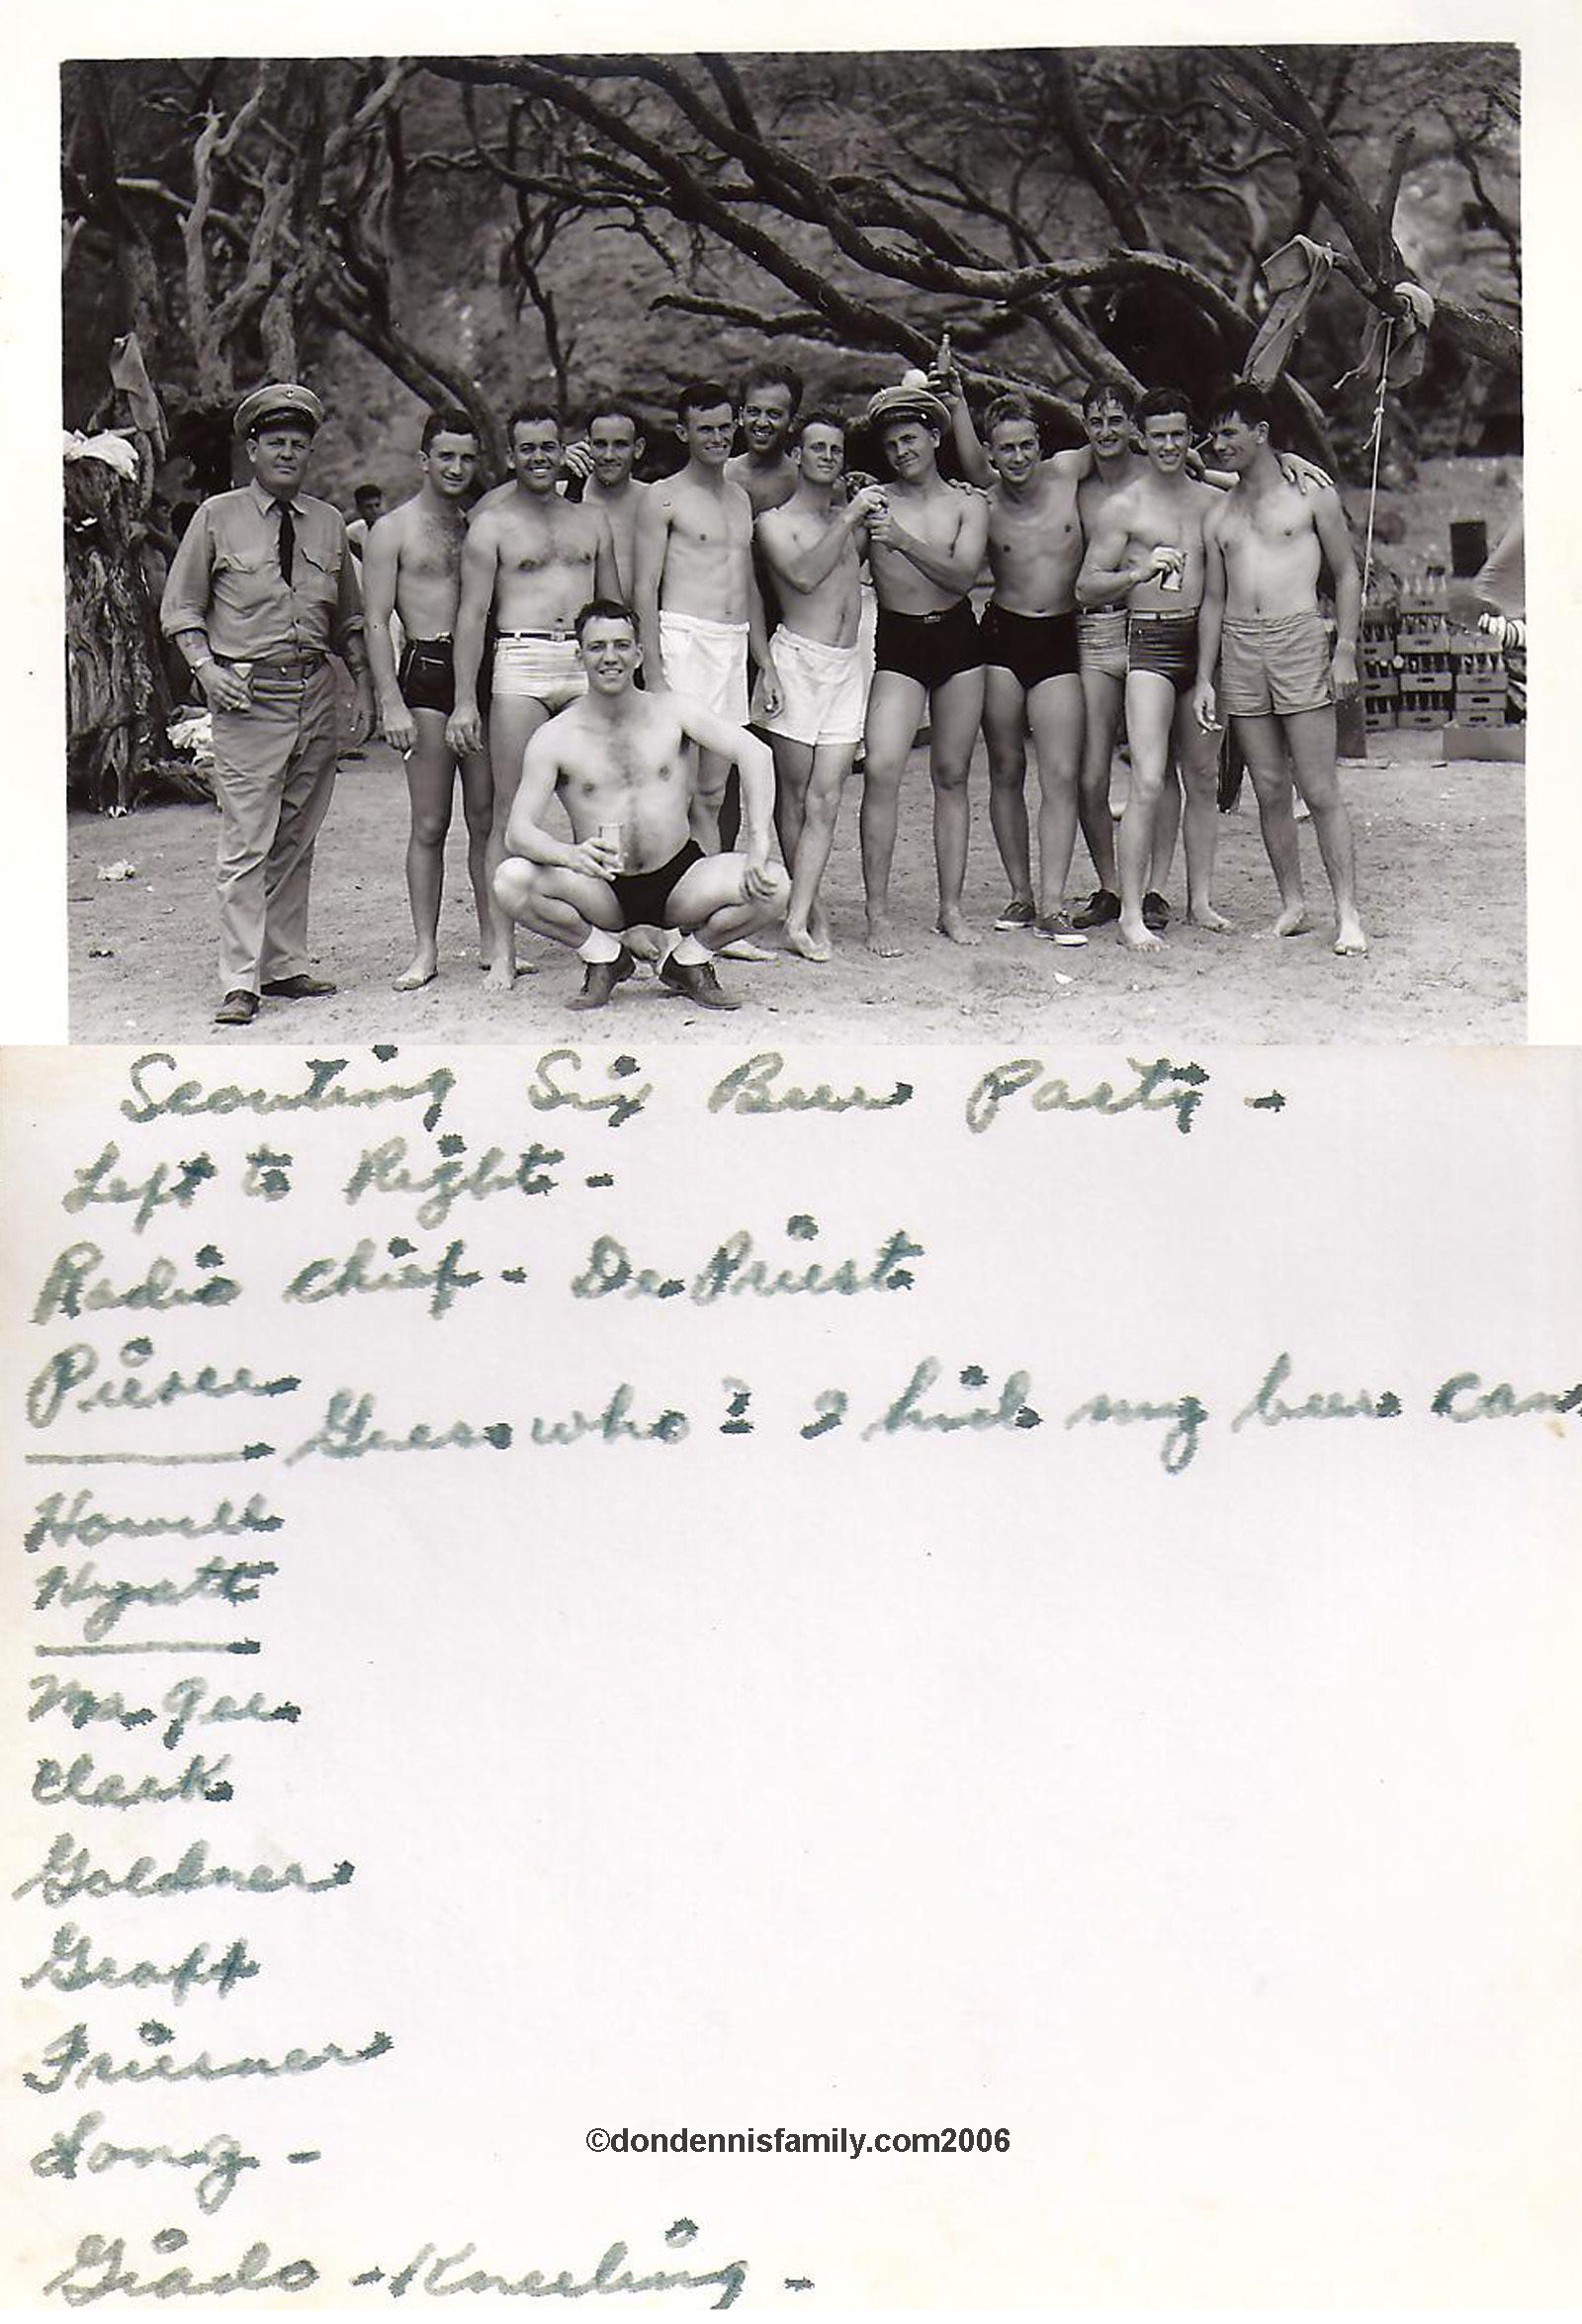 Scouting Six Beer Party -
Left to Right -
Radio Chief - De Priest
Pierce
Guess who? I hid my beer can
Howell
Hyatt
Ma Gee
Clark
Goldner
Graff
Friesner
Long -
©dondennisfamily.com2006
Giado - Kneeling -